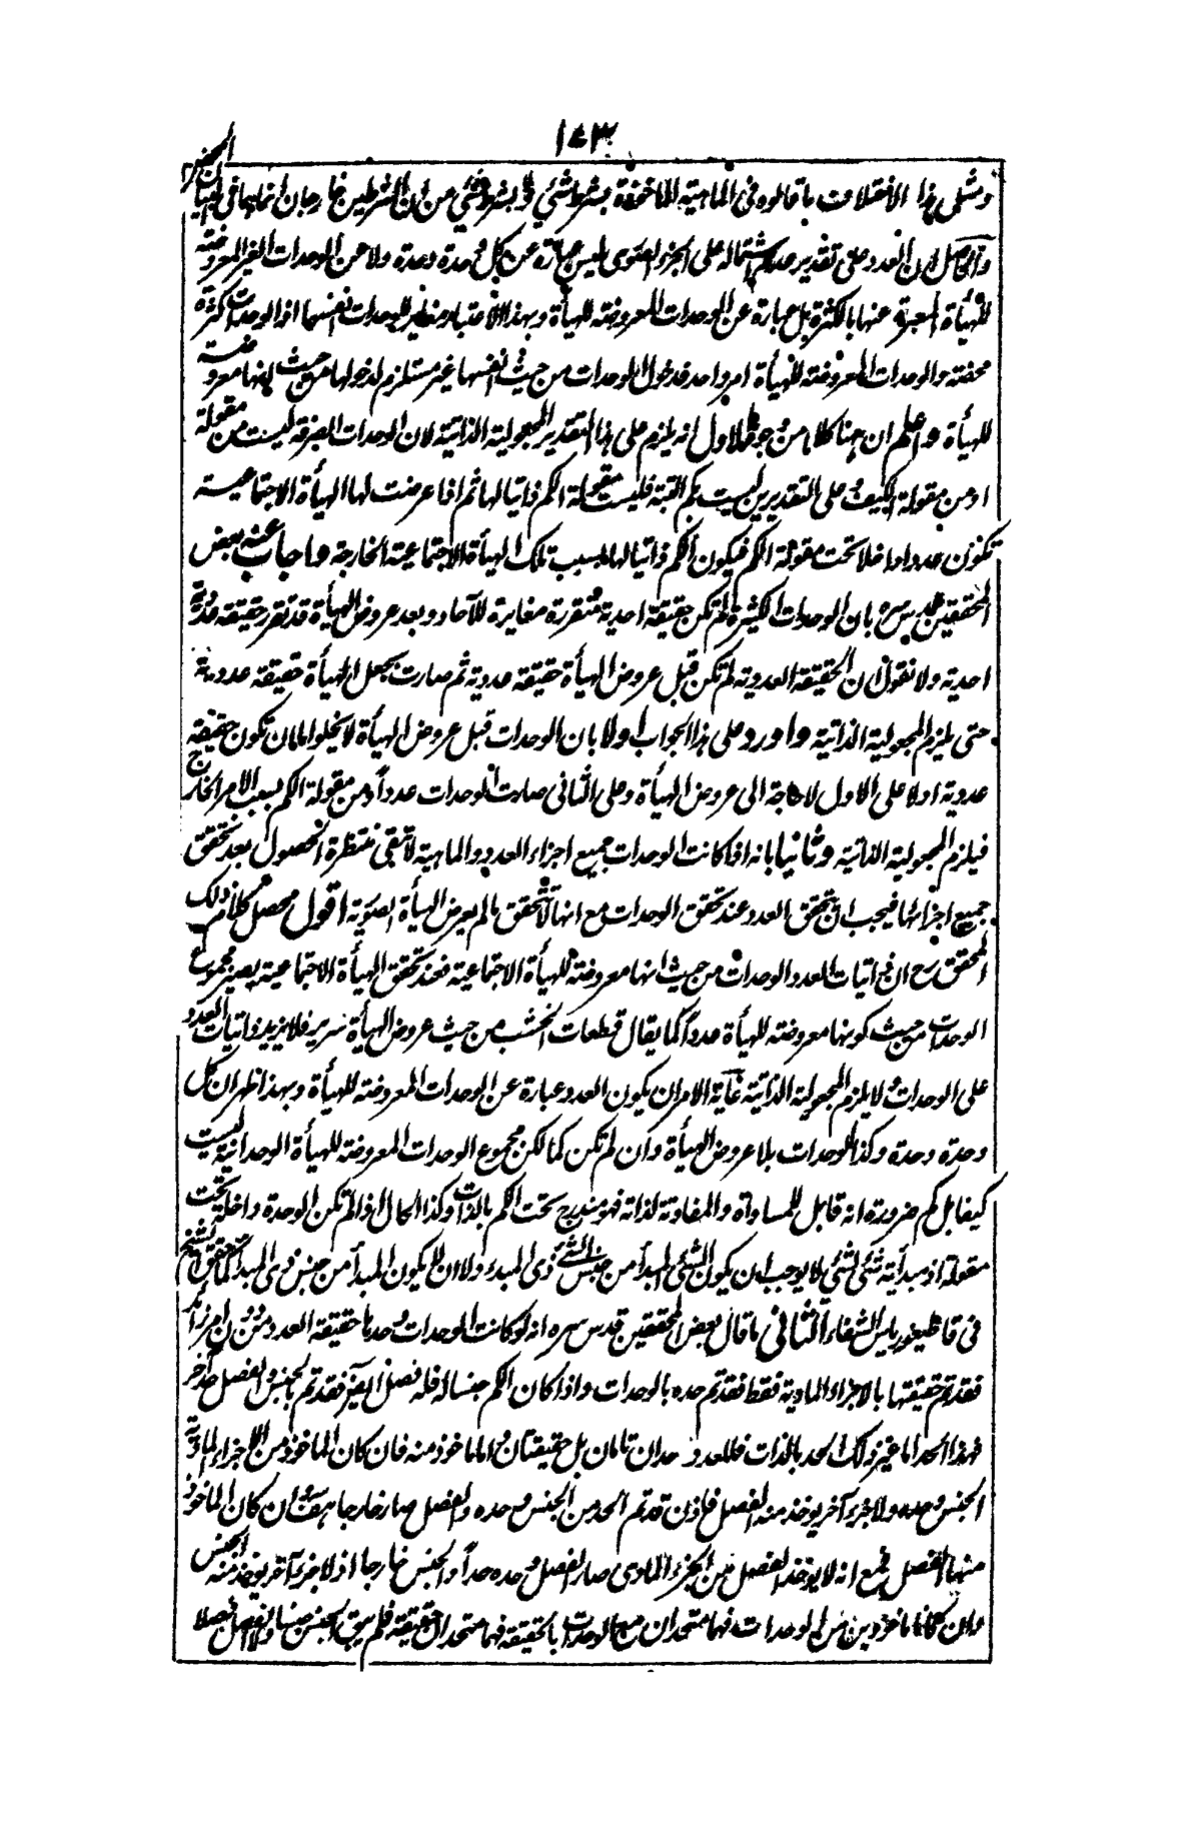 ١٤٣
ومثلى هذا الاختلاف ما قالوه فى الماهية الماخوذة بشرط شئي ولا بشرط شئي من ان الشرطين خارجان
والحاصل ان العدد على تقدير عدم اشتماله على الجزء الصورى ليس عبارة عن كل وحدة وحدة ولا عن الوحدات الغير المعروضة
للهيأة المعبرة عنها بالكثرة بل عبارة عن الوحدات المعروضة للهيأة وبهذا الاعتبار مغاير للوحدات انفسها اذ الوحدات كثرة
محضة والوحدات المعروضة للهيأة امر واحد فدخول الوحدات من حيث انفسها غير مستلزم لدخولها من حيث انها معروضة
للهيأة واعلم ان ههنا كلاما من وجوه الاول انه يلزم على هذا التقدير المجعولية الذاتية لان الوحدات الصرفة ليست من مقولة
او من مقولة الكيف وعلى التقديرين ليست بكم البتة فليست مقولة الكم ذاتيا لها ثم اذا عرضت لها الهيأة الاجتماعية
تكون عددا داخلا تحت مقولة الكم فيكون الكم ذاتيا لها بسبب تلك الهيأة الاجتماعية الخارجة واجاب عنه بعض
المحققين قدس سره بان الوحدات الكثيرة لم تكن حقيقة احدية متقررة مغايرة للآحاد وبعد عروض الهيأة قد تقرر حقيقة عددية
احدية ولا نقول ان الحقيقة العددية لم تكن قبل عروض الهيأة حقيقة عددية ثم صارت بجعل الهيأة حقيقة عددية
حتى يلزم المجعولية الذاتية واورد على هذا الجواب اولا بان الوحدات قبل عروض الهيأة لا يخلو اما ان تكون حقيقة
عددية اولا على الاول لا حاجة الى عروض الهيأة وعلى الثانى صارت الوحدات عدداً ومن مقولة الكم بسبب الامر الخارج
فيلزم المجعولية الذاتية وثانيا بانه اذا كانت الوحدات جميع اجزاء العدد والماهية لا تبقى منتظرة الحصول بعد تحقق
جميع اجزائها فيجب ان تحقق العدد عند تحقق الوحدات مع انها لا تتحقق ما لم يعرض الهيأة الصورية اقول محصل كلام ذلك
المحقق رح ان ذاتيات العدد الوحدات من حيث انها معروضة للهيأة الاجتماعية فعند تحقق الهيأة الاجتماعية يصير مجموع
الوحدات من حيث كونها معروضة للهيأة عدداً كما يقال قطعات الخشب من حيث عروض الهيأة سرير فلا يزيد ذاتيات العدد
على الوحدات ولا يلزم المجعولية الذاتية غاية الامر ان يكون العدد عبارة عن الوحدات المعروضة للهيأة وبهذا ظهر ان كل
وحدة وحدة وكذا الوحدات بلا عروض الهيأة وان لم تكن كما لكن مجموع الوحدات المعروضة للهيأة الوحدانية ليست
كيفا بل كم ضرورة انه قابل للمساواة والمفاوتة لذاته فهو مندرج تحت الكم بالذات وكذا الحال اذا لم تكن الوحدة داخلة تحت
مقولة اذ مبدأية شئى لشئى لا يوجب ان يكون الشئى المبدأ من جنس الشئى ذى المبدء ولا ان يكون المبدأ من جنس ذى المبدأ كما حققه الشيخ
فى قاطيغورياس الشفاء الثانى ما قال بعض المحققين قدس سره انه لو كانت الوحدات وحدها حقيقة العدد من دون امر زائد
فقد تم حقيقتها بالاجزاء المادية فقط فقد تم حده بالوحدات واذا كان الكم جنسا له فله فصل ايضا فقد تم بالجنس والفصل حد آخر
فهذا الحد اما غير ذلك الحد بالذات فللعدد حدان تامان بل حقيقتان واما ماخوذ منه فان كان الماخوذ من الاجزاء المادية
الجنس وحده ولا جزء آخر يوخذ منه الفصل فاذن قد تم الحد من الجنس وحده والفصل صار خارجا هف وان كان الماخوذ
منها الفصل فمع انه لا يوخذ الفصل من الجزء المادى صار الفصل وحده حداً والجنس خارجا اذ لا جزء آخر يوخذ منه الجنس
وان كانا ماخوذين من الوحدات فهما متحدان مع الوحدات بالحقيقة فهما متحدان حقيقة فلم يبق الجنس جنسا ولا الفصل فصلا